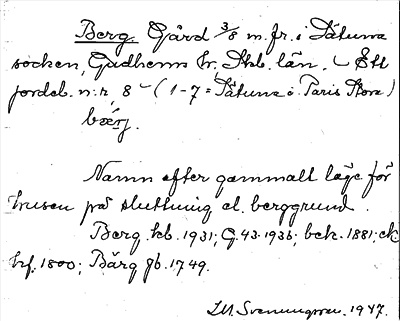 Berg. Gård 3/8 m. fr. i Sätuna
socken, Gudhems hr, Skb. län. – Ett
jordeb. n:r 8 – (1-7 = Sätuna o. Paris Stora)
bærj.
Namn efter gammalt läge för
husen på sluttning el. berggrund.
Berg. kb. 1931; G. 43. 1936; bek. 1881; ek
hf. 1800; Bärg jb. 1749.
Svenungsson. 1947.